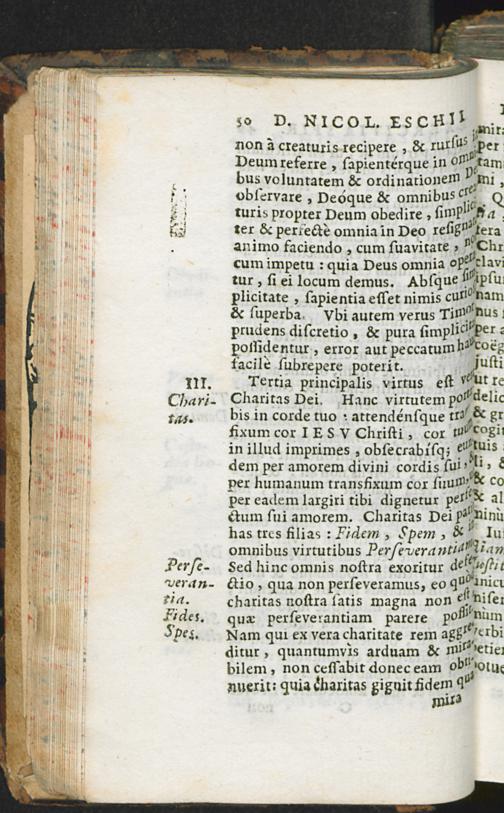 50 D. NICOL. ESCHII
non à creaturis recipere, & rursus
Deum referre, sapientérque in omni-
bus voluntatem & ordinationem De
observare, Deóque & omnibus crea
turis propter Deum obedire, simplici
ter & perfectè omnia in Deo resignat
animo faciendo, cum suavitate, no
cum impetu: quia Deus omnia opera
tur, si ei locum demus. Absque sim
plicitate, sapientia esset nimis curio
& superba. Vbi autem verus Timor
prudens discretio, & pura simplicita
possidentur, error aut peccatum hau
facilè subrepere poterit.
III.
Tertia principalis virtus est ve
Chari-
tas.
Charitas Dei. Hanc virtutem por
bis in corde tuo: attendénsque tra
fixum cor IESV Christi, cor tuu
in illud imprimes, obsecrabísq; eun
dem per amorem divini cordis sui, &
per humanum transfixum cor suum,
per eadem largiri tibi dignetur perfe
ctum sui amorem. Charitas Dei pa
has tres filias: Fidem, Spem, &
omnibus virtutibus Perseverantiam
Perse-
veran-
tia.
Fides.
Spes.
Sed hinc omnis nostra exoritur defe
ctio, qua non perseveramus, eo quòd
charitas nostra satis magna non est
quæ perseverantiam parere possit
Nam qui ex vera charitate rem aggre
ditur, quantumvis arduam & mira
bilem, non cessabit donec eam obti
nuerit: quia charitas gignit fidem qua
mira